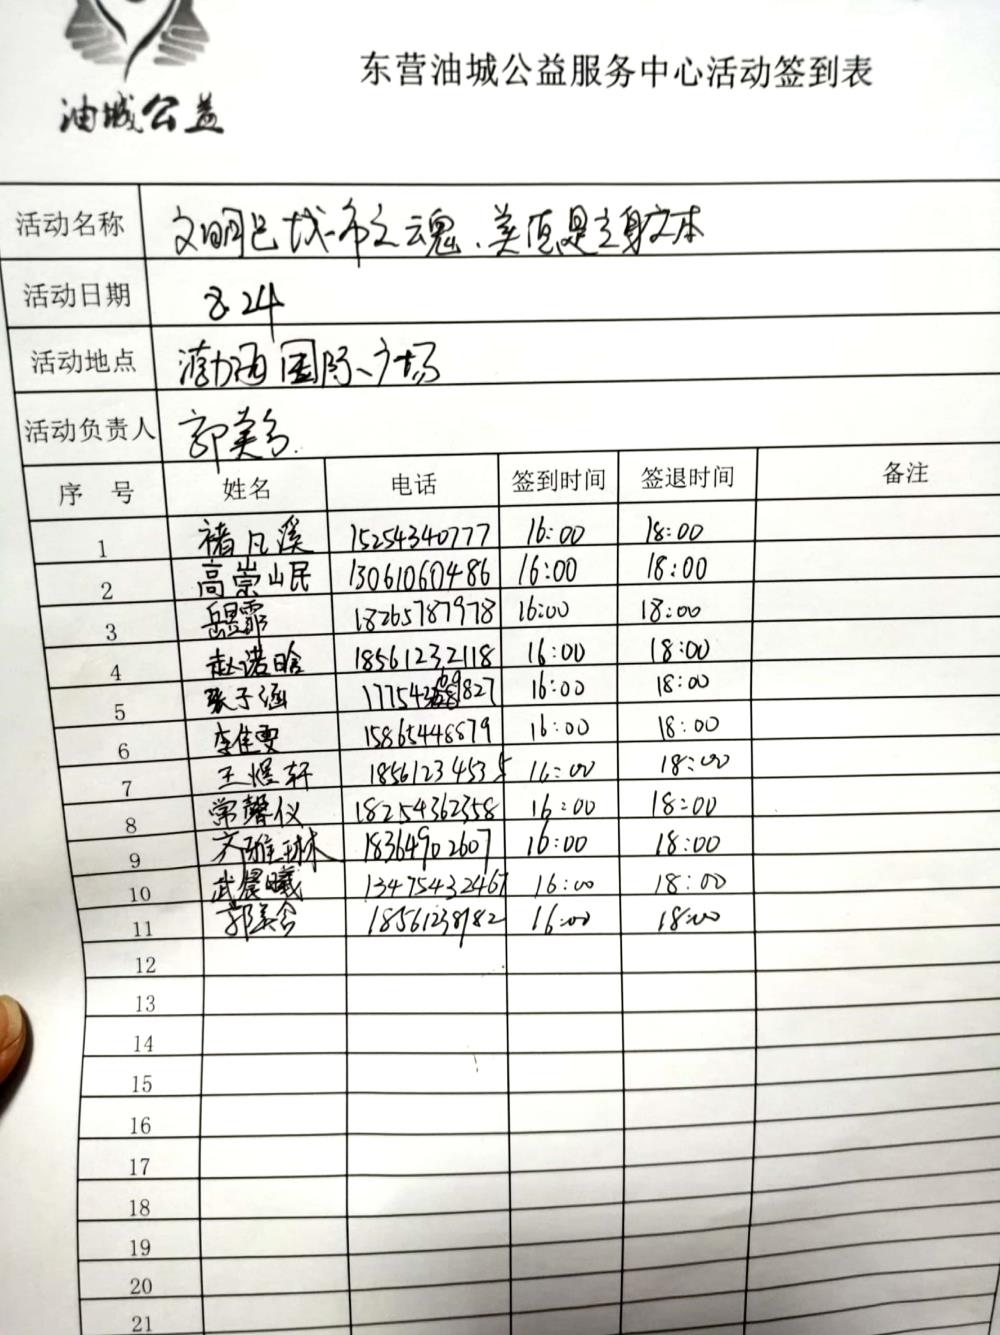 油城公益
东营油城公益服务中心活动签到表
活动名称 文明是城市之魂、美德是立身之本
活动日期 8.24
活动地点 渤海国际广场
活动负责人 郭美含
序 号 姓名 电话 签到时间 签退时间 备注
1 褚凡溪 15254340777 16:00 18:00
2 高崇民 13061060486 16:00 18:00
3 岳昱霏 18265787978 16:00 18:00
4 赵诺晗 18561232118 16:00 18:00
5 张子涵 16:00 18:00
6 李佳雯 15865448879 16:00 18:00
7 王煜轩 18561234535 16:00 18:00
8 常馨仪 18254362358 16:00 18:00
9 齐雅琳 18364902607 16:00 18:00
10 武晨曦 13475432467 16:00 18:00
11 郭美含 18561238182 16:00 18:00
12
13
14
15
16
17
18
19
20
21